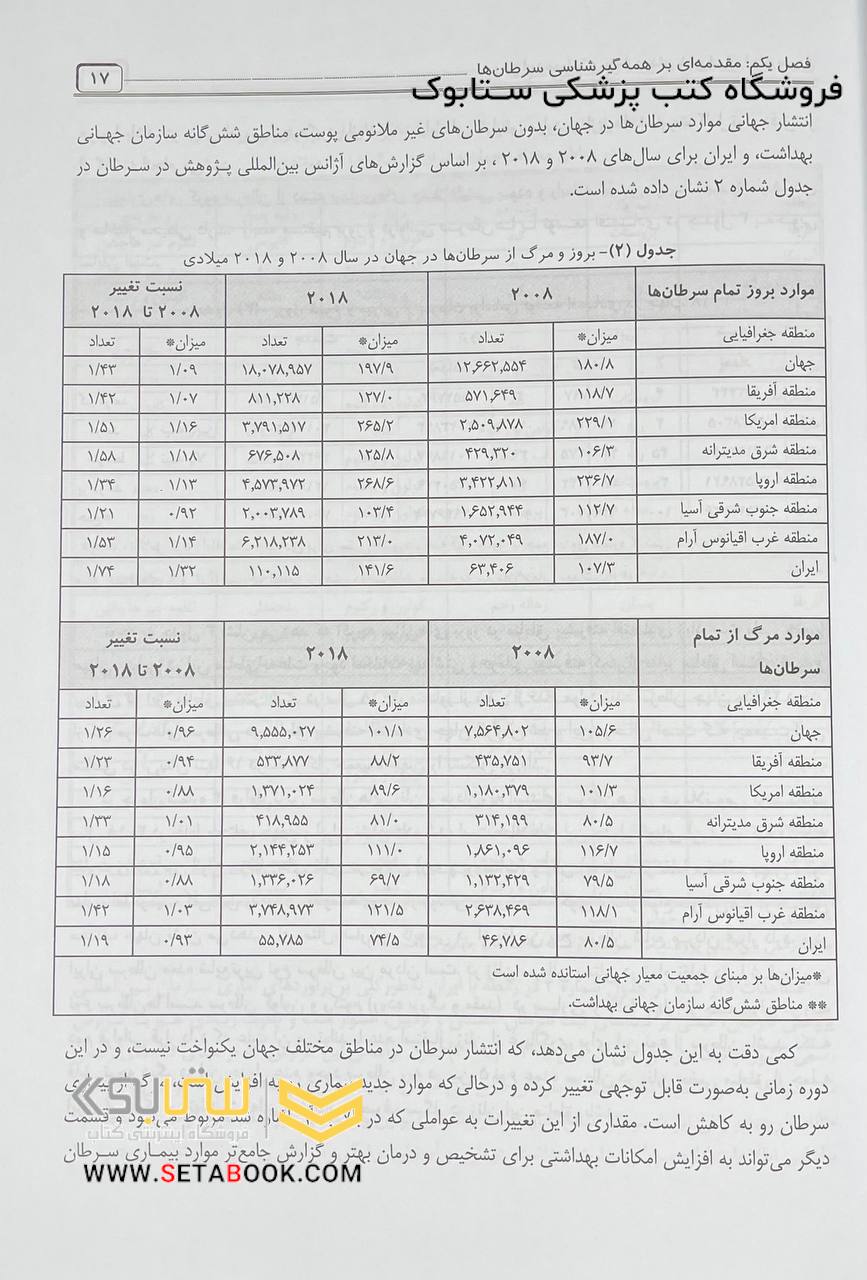 فصل یکم: مقدمه‌ای بر همه‌گیرشناسی سرطان‌ها ۱۷
فروشگاه کتب پزشکی ستابوک
انتشار جهانی موارد سرطان‌ها در جهان، بدون سرطان‌های غیر ملانومی پوست، مناطق شش‌گانه سازمان جهانی
بهداشت، و ایران برای سال‌های ۲۰۰۸ و ۲۰۱۸ ، بر اساس گزارش‌های آژانس بین‌المللی پژوهش در سرطان در
جدول شماره ۲ نشان داده شده است.
جدول (۲)- بروز و مرگ از سرطان‌ها در جهان در سال ۲۰۰۸ و ۲۰۱۸ میلادی
موارد بروز تمام سرطان‌ها ۲۰۰۸ ۲۰۱۸ نسبت تغییر
۲۰۰۸ تا ۲۰۱۸
منطقه جغرافیایی میزان* تعداد میزان* تعداد میزان* تعداد
جهان ۱۸۰/۸ ۱۲,۶۶۲,۵۵۴ ۱۹۷/۹ ۱۸,۰۷۸,۹۵۷ ۱/۰۹ ۱/۴۳
منطقه آفریقا ۱۱۸/۷ ۵۷۱,۶۴۹ ۱۲۷/۰ ۸۱۱,۲۲۸ ۱/۰۷ ۱/۴۲
منطقه امریکا ۲۲۹/۱ ۲,۵۰۹,۸۷۸ ۲۶۵/۲ ۳,۷۹۱,۵۱۷ ۱/۱۶ ۱/۵۱
منطقه شرق مدیترانه ۱۰۶/۳ ۴۲۹,۳۲۰ ۱۲۵/۸ ۶۷۶,۵۰۸ ۱/۱۸ ۱/۵۸
منطقه اروپا ۲۳۶/۷ ۳,۴۲۲,۸۱۱ ۲۶۸/۶ ۴,۵۷۳,۹۷۲ ۱/۱۳ ۱/۳۴
منطقه جنوب شرقی آسیا ۱۱۲/۷ ۱,۶۵۲,۹۴۴ ۱۰۳/۴ ۲,۰۰۳,۷۸۹ ۰/۹۲ ۱/۲۱
منطقه غرب اقیانوس آرام ۱۸۷/۰ ۴,۰۷۲,۰۴۹ ۲۱۳/۰ ۶,۲۱۸,۲۳۸ ۱/۱۴ ۱/۵۳
ایران ۱۰۷/۳ ۶۳,۴۰۶ ۱۴۱/۶ ۱۱۰,۱۱۵ ۱/۳۲ ۱/۷۴
موارد مرگ از تمام
سرطان‌ها ۲۰۰۸ ۲۰۱۸ نسبت تغییر
۲۰۰۸ تا ۲۰۱۸
منطقه جغرافیایی میزان* تعداد میزان* تعداد میزان* تعداد
جهان ۱۰۵/۶ ۷,۵۶۴,۸۰۲ ۱۰۱/۱ ۹,۵۵۵,۰۲۷ ۰/۹۶ ۱/۲۶
منطقه آفریقا ۹۳/۷ ۴۳۵,۷۵۱ ۸۸/۲ ۵۳۳,۸۷۷ ۰/۹۴ ۱/۲۳
منطقه امریکا ۱۰۱/۳ ۱,۱۸۰,۳۷۹ ۸۹/۶ ۱,۳۷۱,۰۲۴ ۰/۸۸ ۱/۱۶
منطقه شرق مدیترانه ۸۰/۵ ۳۱۴,۱۹۹ ۸۱/۰ ۴۱۸,۹۵۵ ۱/۰۱ ۱/۳۳
منطقه اروپا ۱۱۶/۷ ۱,۸۶۱,۰۹۶ ۱۱۱/۰ ۲,۱۴۴,۲۵۳ ۰/۹۵ ۱/۱۵
منطقه جنوب شرقی آسیا ۷۹/۵ ۱,۱۳۲,۴۲۹ ۶۹/۷ ۱,۳۳۶,۰۲۶ ۰/۸۸ ۱/۱۸
منطقه غرب اقیانوس آرام ۱۱۸/۱ ۲,۶۳۸,۴۶۹ ۱۲۱/۵ ۳,۷۴۸,۹۷۳ ۱/۰۳ ۱/۴۲
ایران ۸۰/۵ ۴۶,۷۸۶ ۷۴/۵ ۵۵,۷۸۵ ۰/۹۳ ۱/۱۹
*میزان‌ها بر مبنای جمعیت معیار جهانی استانده شده است
** مناطق شش‌گانه سازمان جهانی بهداشت.
کمی دقت به این جدول نشان می‌دهد، که انتشار سرطان در مناطق مختلف جهان یکنواخت نیست، و در این
دوره زمانی به‌صورت قابل توجهی تغییر کرده و درحالی‌که موارد جدید بیماری رو به افزایش است،
سرطان رو به کاهش است. مقداری از این تغییرات به عواملی که در اشاره شد مربوط می‌بود و قسمت
دیگر می‌تواند به افزایش امکانات بهداشتی برای تشخیص و درمان بهتر و گزارش جامع‌تر موارد بیماری سرطان
ستابوک
فروشگاه اینترنتی کتاب
WWW.SETABOOK.COM